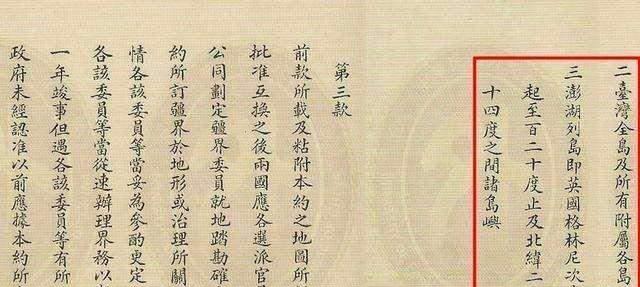 二臺灣全島及所有附屬各島
三澎湖列島即英國格林尼次
起至百二十度止及北緯二
十四度之間諸島嶼
第三款
前款所載及粘附本約之地圖所
批准互換之後兩國應各選派官
公同劃定疆界委員就地踏勘確
約所訂疆界於地形或治理所關
情各該委員等當妥為參酌更定
各該委員等當從速辦理界務以
一年竣事但遇各該委員等有所
政府未經認准以前應據本約所